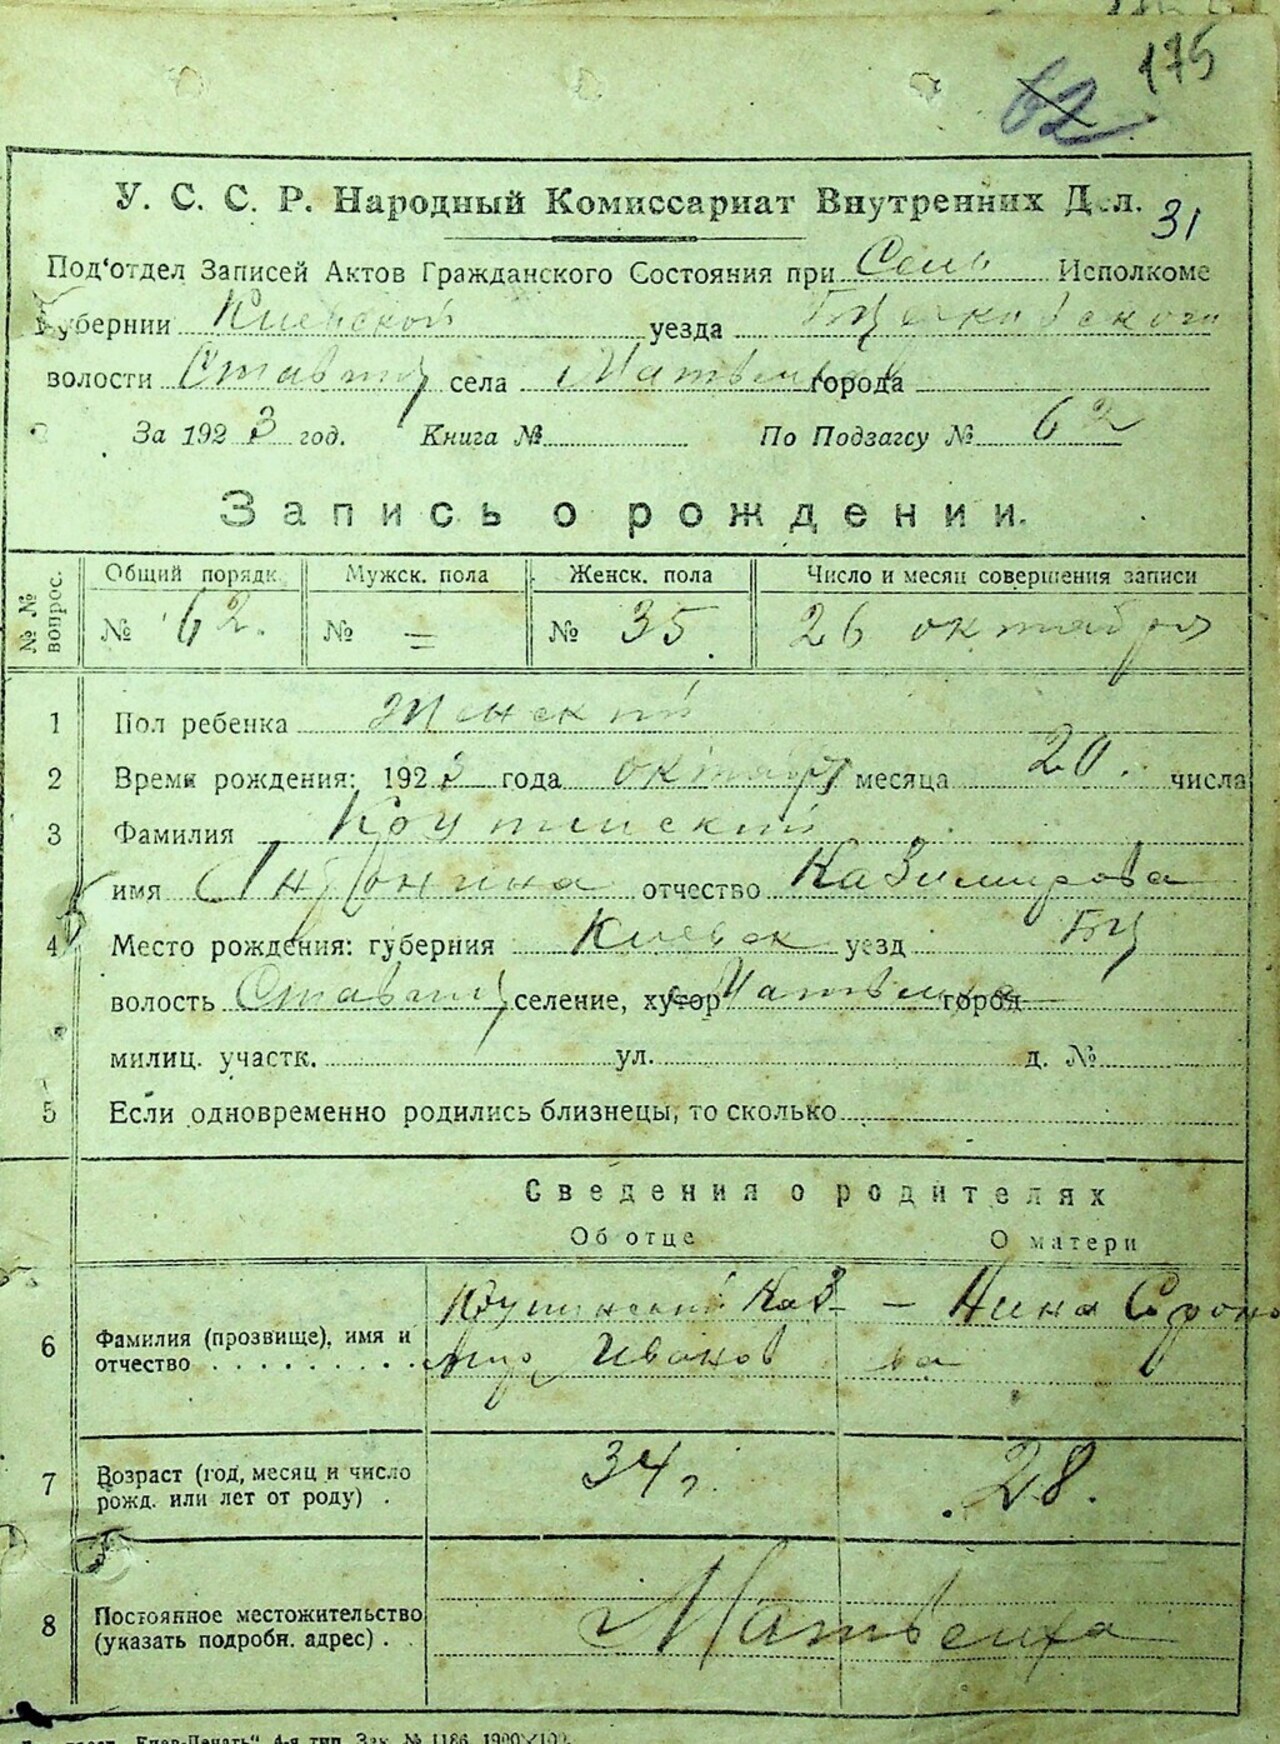 175
62
У. С. С. Р. Народный Комиссариат Внутренних Дел. 31
Под'отдел Записей Актов Гражданского Состояния при Сель Исполкоме
Губернии Киевской уезда Бцерковского
волости Ставищ села Матвеиха города
За 1923 год. Книга № По Подзагсу № 62
Запись о рождении.
№ № вопрос. Общий порядк. Мужск. пола Женск. пола Число и месяц совершения записи
№ 62. № = № 35. 26 октября
1 Пол ребенка Женский
2 Время рождения: 1923 года октябр месяца 20. числа
3 Фамилия
имя Антонина отчество Казимирова
4 Место рождения: губерния Киевск уезд Бц
волость Ставищ селение, хутор Матвеиха город
милиц. участк. ул. д. №
5 Если одновременно родились близнецы, то сколько
Сведения о родителях
Об отце О матери
6 Фамилия (прозвище), имя и отчество Каз- — Нина
имир Иванов ва
7 Возраст (год, месяц и число рожд. или лет от роду) . 34 г. 28.
8 Постоянное местожительство (указать подробн. адрес) . Матвеиха
4-я тип. Зак. № 1186